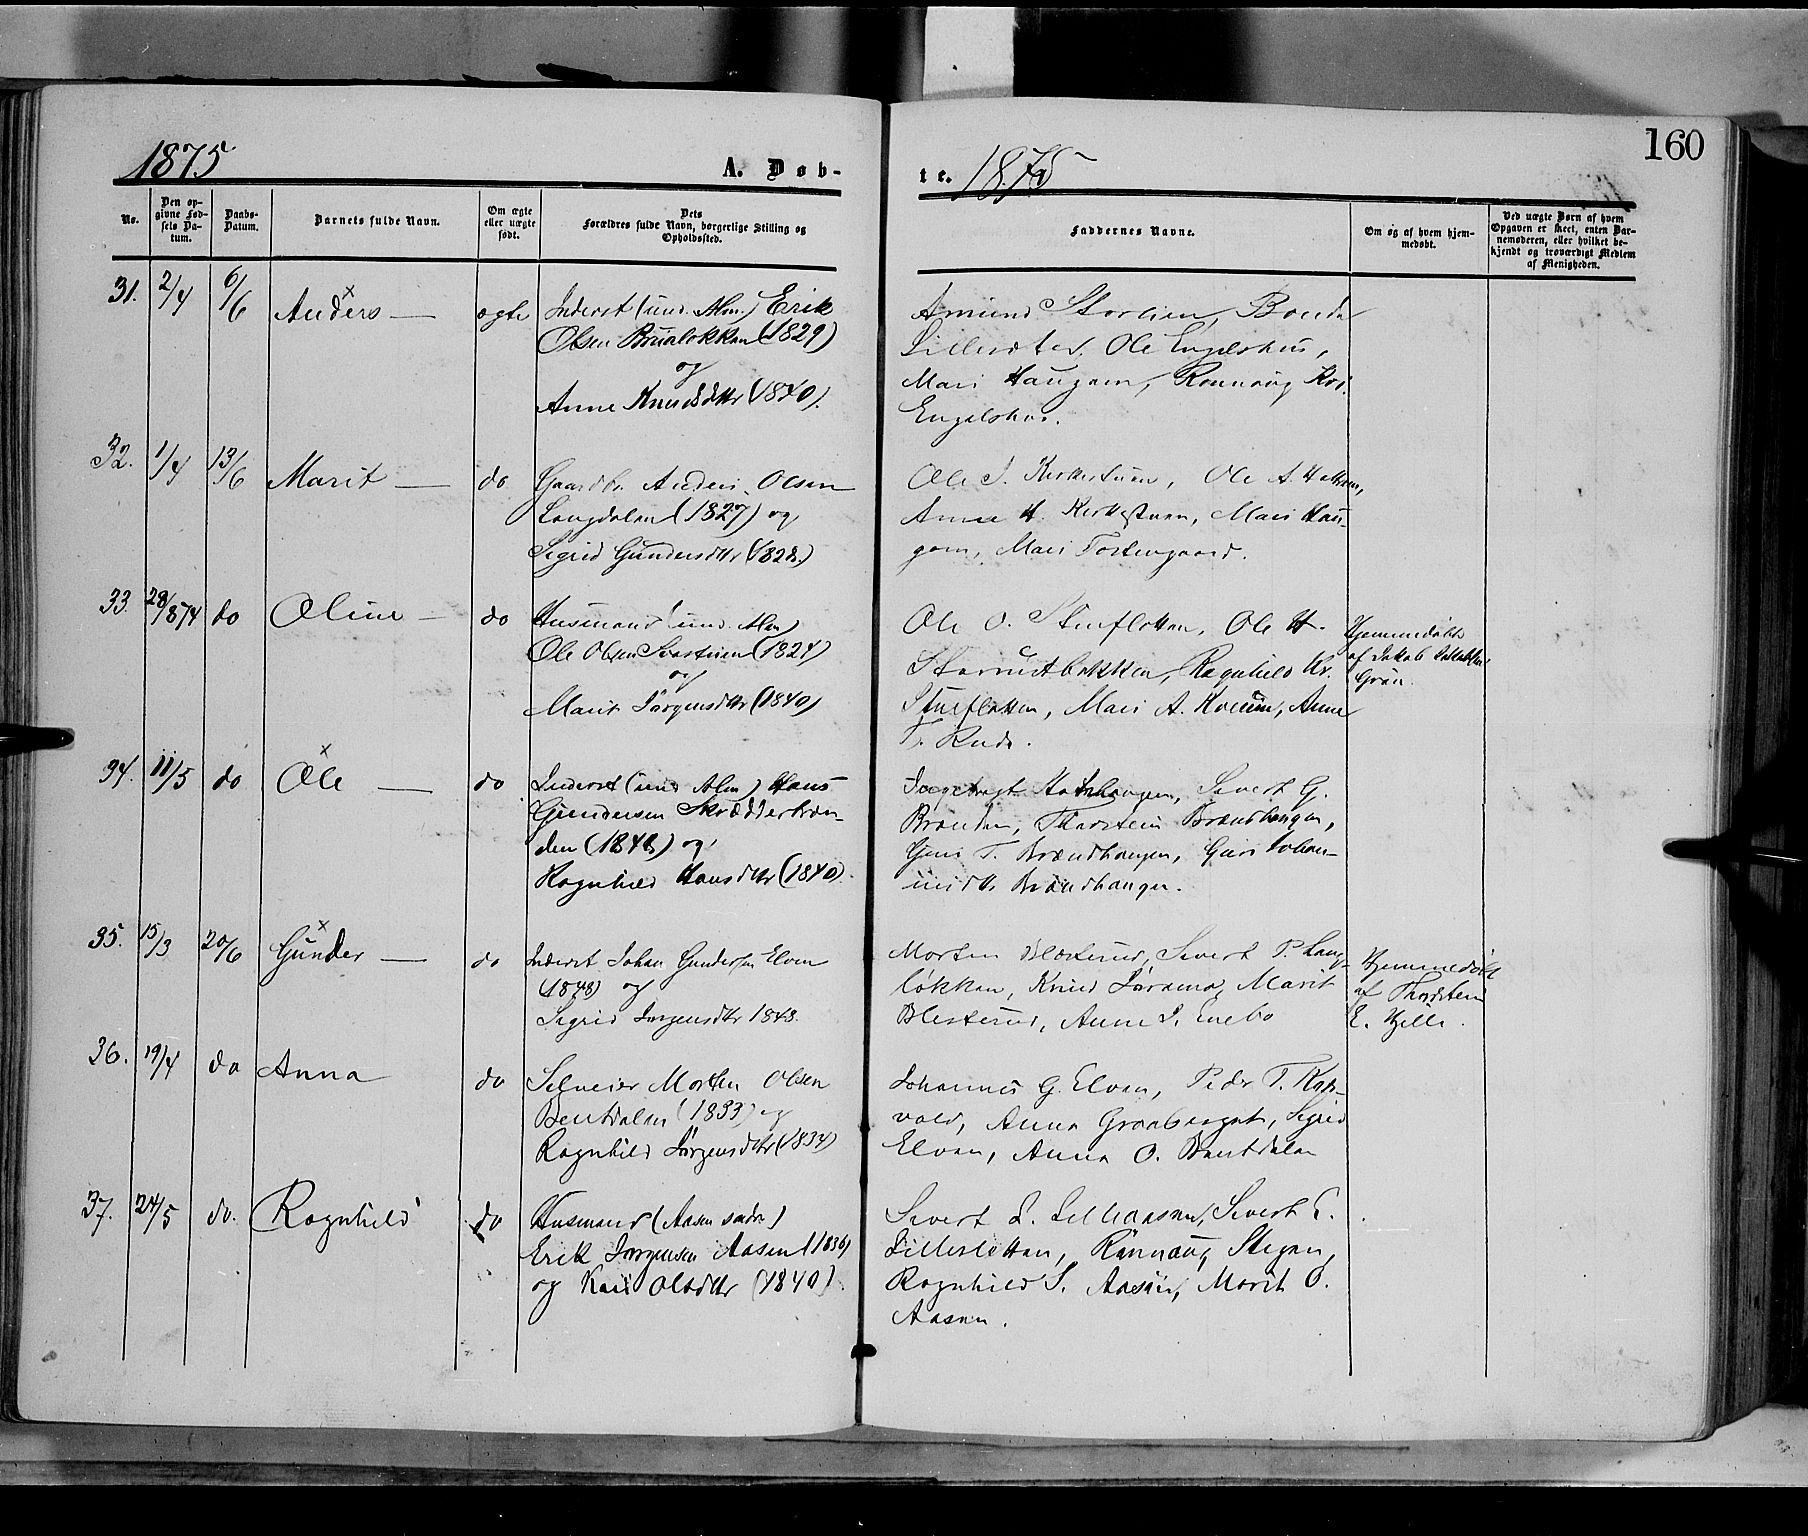 160
1875
A. Døb-
te. 1875
No.
Den op-
givne Fød-
sels Da-
tum.
Daabs-
Datum.
Barnets fulde Navn.
Om ægte
eller uægte
født.
Dets
Forældres fulde Navn, borgerlige Stilling og
Opholdssted.
Faddernes Navne.
Om og af hvem hjem-
medøbt.
Ved uægte Børn af hvem
Opgaven er skeet, enten Bar-
nemoderen, eller hvilket be-
kjendt og troværdigt Medlem
af Menigheden.
31. 2/4 6/6 Anders — ægte
Inderst (und. Alm.) Erik
Olsen Brualøkken (1829)
og
Anne Knudsdttr (1840).
Amund Storlien,
Ole Engelshus,
Mari Haugen, Rønnaug
Engelshus.
32. 1/4 13/6 Marit — do
Gaardbr. Anders Olsen
Langdalen (1827) og
Sigrid Gundersdttr (1828.)
Ole J. Kirkestuen, Ole A.
Anne H. Kirkestuen, Mari Hau-
gen, Mari Tostengaard.
33. 28/8 74 do Oline — do
Husmand (und. Alm)
Ole Olsen (1824)
og
Marit Jørgensdttr (1840)
Ole O. Stueflotten, Ole H.
Ragnhild Kr.
Stueflotten, Mari A. Anne
T. Rude.
Hjemmedøbt
af Jakob
Grøn
34. 11/5 do Ole — do
Inderst (und Alm) Hans
Gundersen Skrædderbræn-
den (1848) og
Ragnhild Hansdttr (1840).
Sivert G.
Brænden, Thorstein Brændhaugen,
T. Brændhaugen, Guri Johan-
Brændhaugen.
35. 15/3 20/6 Gunder — do
Inderst Johan Gundersen Elven
(1848) og
Sigrid Jørgensdttr 1848.
Morten Sivert P. Lang-
løkken, Knud Marit
Anne J. Enebo
Hjemmedøbt
af Thorstein
E. Hjelle.
36. 19/4 do Anna do
Selveier Morten Olsen
Bentdalen (1833) og
Ragnhild Jørgensdttr (1834)
Johannes G. Elven, Peder T.
vold, Anna Graaberget, Sigrid
Elven, Anna O. Bentdalen
37. 24/5 do. Ragnhild do
Husmand (Aasen søndre)
Erik Jørgensen Aasen (1836)
og Kari Olsdttr (1840).
Sivert L. Lilleaasen, Sivert E.
Lillesletten, Rønnaug Stegen,
Ragnhild S. Aasen, Marit O.
Aasen.